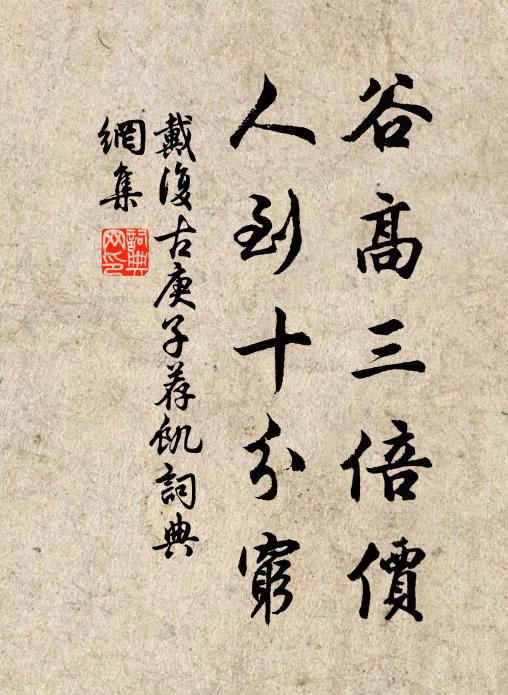 谷高三倍價
人到十分窮
戴復古庚子荐飢詞典
網集
詞典
网印